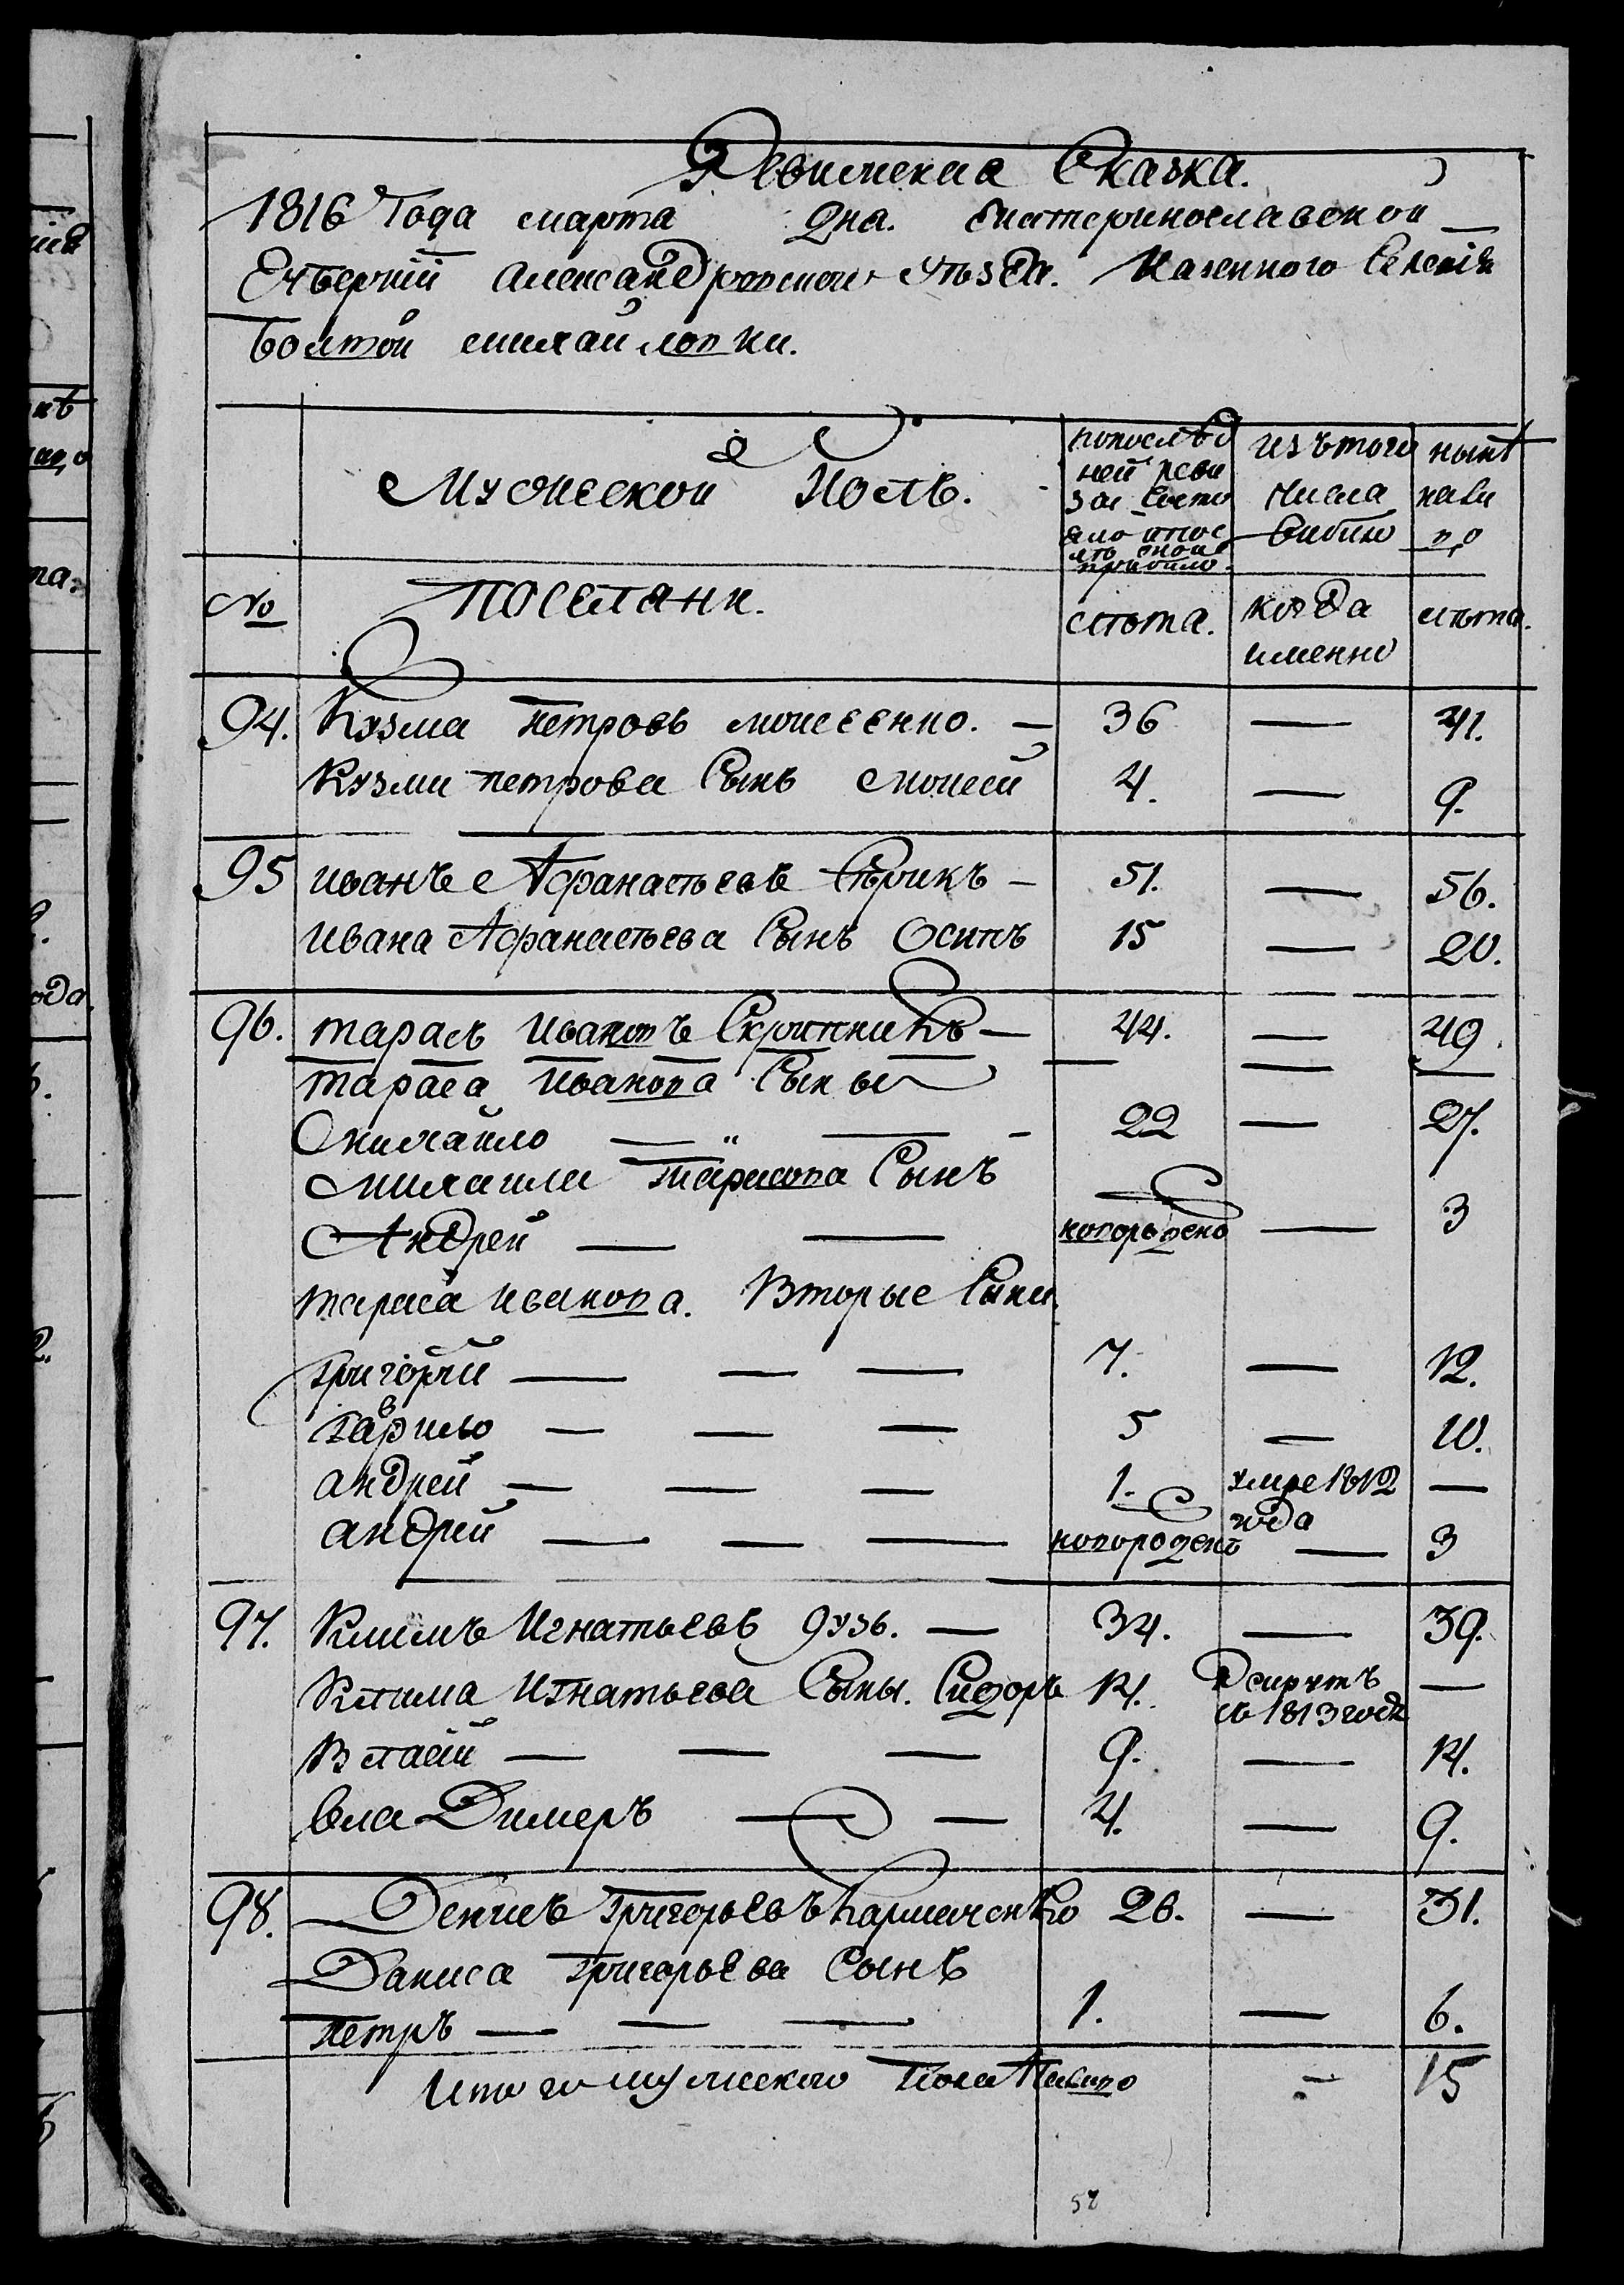 Ревизская Сказка.
1816 Года марта дня. Екатеринославской
Губернии Александровского Уѣзда. Казенного Селенія
Болшой михайловки.
Мужеской Полъ.
попослѣд
ней реви
зіи Состо
яло ипос
лѣ оной
прибило.
изътого
числа
Выбило
нынѣ
нали
цо
№
Поселяни.
лѣта.
когда
именно
лѣта.
94. Кузма петровъ моисеенко. — 36 — 41.
Кузми петрова Сынъ моисей 4. — 9.
95 иванъ Афанасьевъ — 51. — 56.
ивана Афанасьева Сынъ Осипъ 15 — 20.
96. тарасъ ивановъ Скрипникъ — 44. — 49.
тараса иванова Сыны — — —
михайло — " — - 22 — 27.
михаили тарасова Сынъ
Андрей — — новорожденъ — 3
тараса иванова. Вторые Сыни
григорій — — — 7. — 12.
гаврило — — — 5 — 10.
андрей — — — 1. умре 1812 года —
андрей — — — новорожденъ — 3
97. Климъ Игнатьевъ — 34. — 39.
Клима Игнатьева Сыны. Сидоръ 14. врекруты въ 1813 году —
Власій — — — 9. — 14.
вла Димеръ — — 4. — 9.
98. Денисъ григорьевъ 26. — 31.
Даниса григорьева Сынъ
петръ — — — 1. — 6.
Итого мужеского Пола На лицо — 15